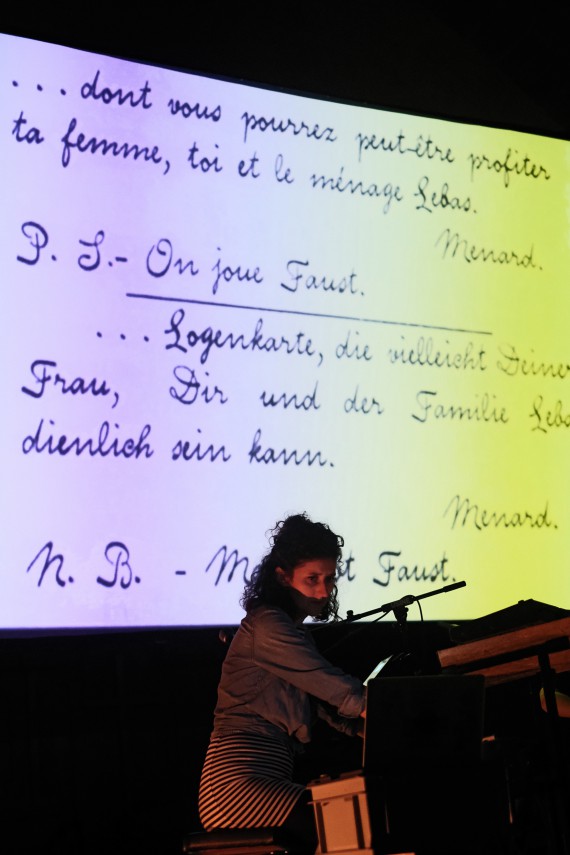 ...dont vous pourrez peut-être profiter
ta femme, toi et le ménage Lebas.
Menard.
P. S.- On joue Faust.
...Logenkarte, die vielleicht Deiner
Frau, Dir und der Familie Leba
dienlich sein kann.
Menard.
N. B. - M t Faust.